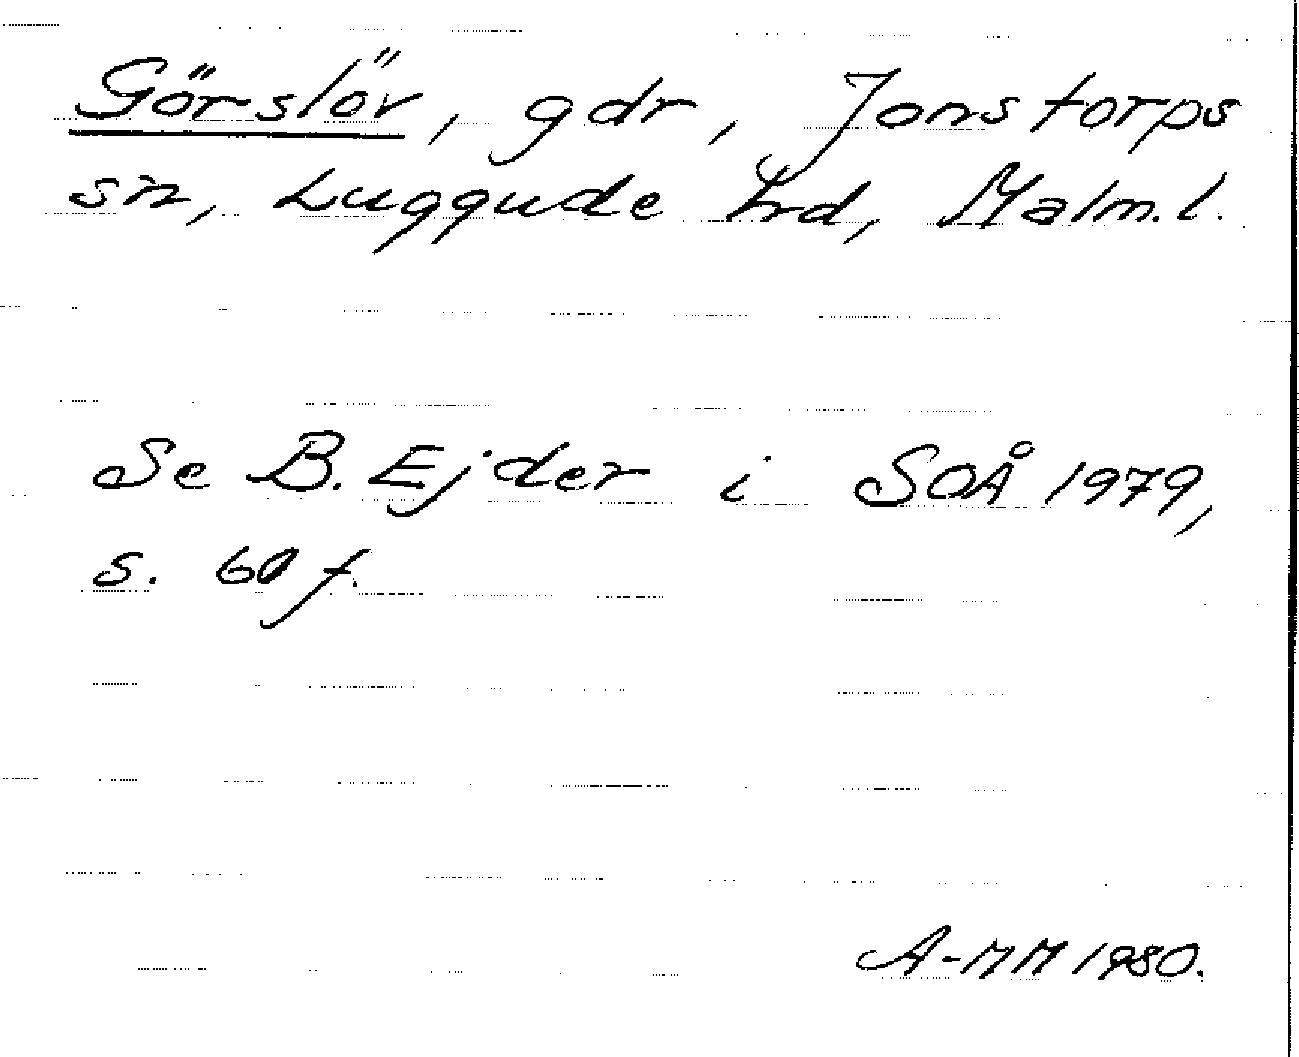 Görslöv, gdr, Jonstorps
sn, Luggude hrd, Malm. l.
Se B. Ejder i SOÅ 1979,
s. 60 f.
A-MM 1980.